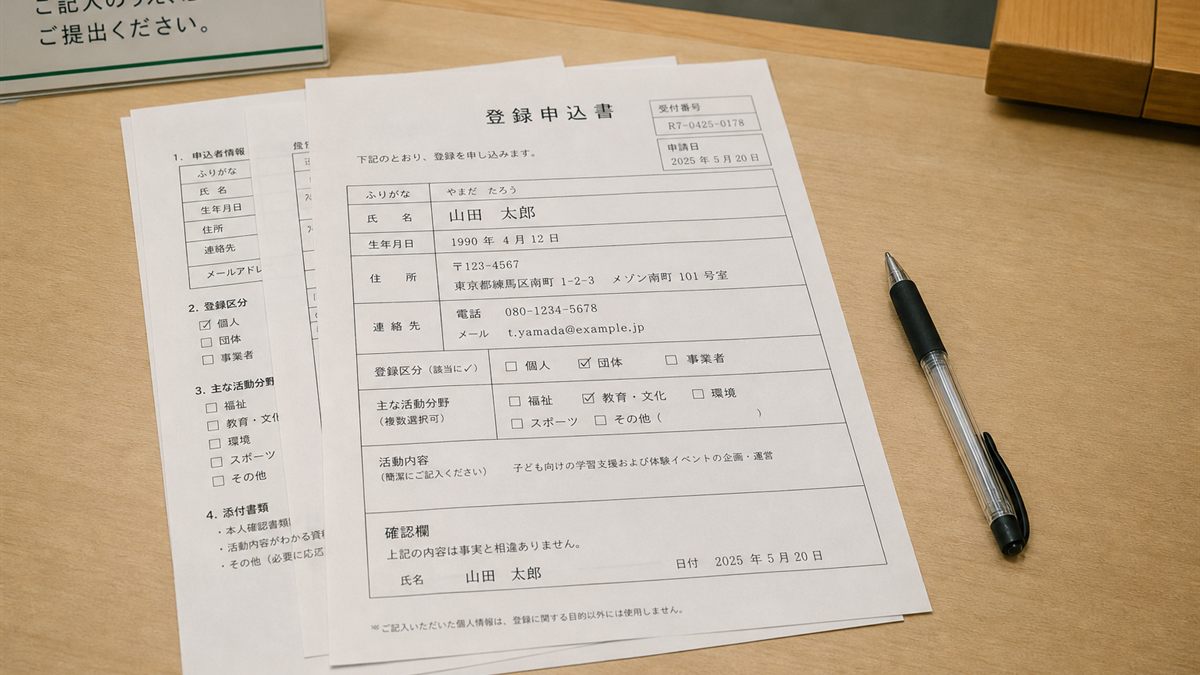 ご提出ください。
1. 申込者情報
ふりがな
氏 名
生年月日
住所
連絡先
メールアドレ
2. 登録区分
☑ 個人
☐ 団体
☐ 事業者
3. 主な活動分野
☐ 福祉
☐ 教育・文化
☐ 環境
☐ スポーツ
☐ その他
4. 添付書類
・本人確認書類
・活動内容がわかる資料
・その他（必要に応
登録申込書
受付番号
R7-0425-0178
申請日
2025 年 5 月 20 日
下記のとおり、登録を申し込みます。
ふりがな やまだ たろう
氏 名 山田 太郎
生年月日 1990 年 4 月 12 日
住 所 〒123-4567
東京都練馬区南町 1-2-3 メゾン南町 101 号室
連 絡 先 電話 080-1234-5678
メール t.yamada@example.jp
登録区分（該当に✓） ☐ 個人 ☑ 団体 ☐ 事業者
主な活動分野 ☐ 福祉 ☑ 教育・文化 ☐ 環境
（複数選択可） ☐ スポーツ ☐ その他（ ）
活動内容
（簡潔にご記入ください） 子ども向けの学習支援および体験イベントの企画・運営
確認欄
上記の内容は事実と相違ありません。
氏名 山田 太郎 日付 2025 年 5 月 20 日
※ご記入いただいた個人情報は、登録に関する目的以外には使用しません。